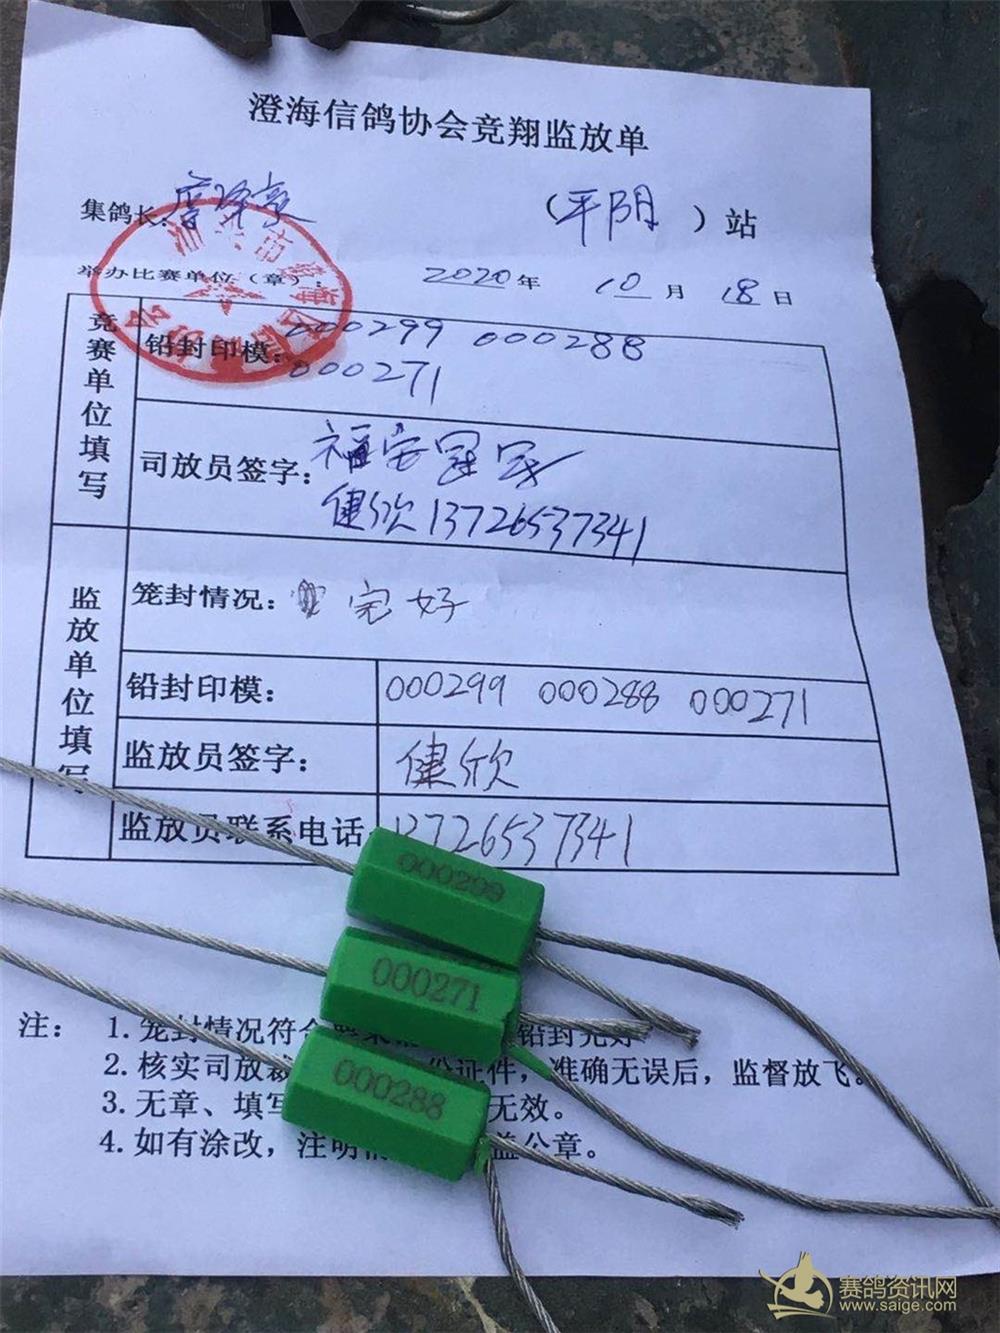 澄海信鸽协会竞翔监放单
集鸽长：
（平阴）站
举办比赛单位（章）：
2020年 10月 18日
竞赛单位填写
铅封印模：000299 000288
000271
司放员签字：福安
健欣 13726537341
监放单位填写
笼封情况：完好
铅封印模：000299 000288 000271
监放员签字：健欣
监放员联系电话 13726537341
000299
000271
000288
注：1.笼封情况符合 铅封完好
2.核实司放 份证件，准确无误后，监督放飞。
3.无章、填写 无效。
4.如有涂改，注明 盖公章。
赛鸽资讯网
www.saige.com